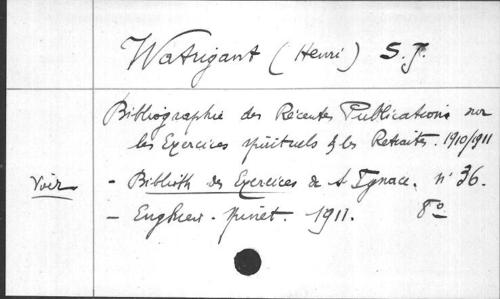 Watrigant (Henri) S.J.
Bibliographie des Récentes Publications sur
les Exercices spirituels & les Retraites. 1910/1911
Voir - Biblioth des Exercices de St Ignace. n° 36.
- Enghien. pinet. 1911. 8°